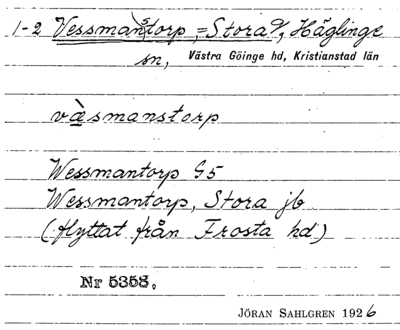 1-2 Vessmanstorp, =Stora, Häglinge
sn, Västra Göinge hd, Kristianstad län
væ̀smanstorp
Wessmantorp G5
Wessmantorp, Stora jb
(flyttat från Frosta hd)
Nr 5358.
JÖRAN SAHLGREN 1926